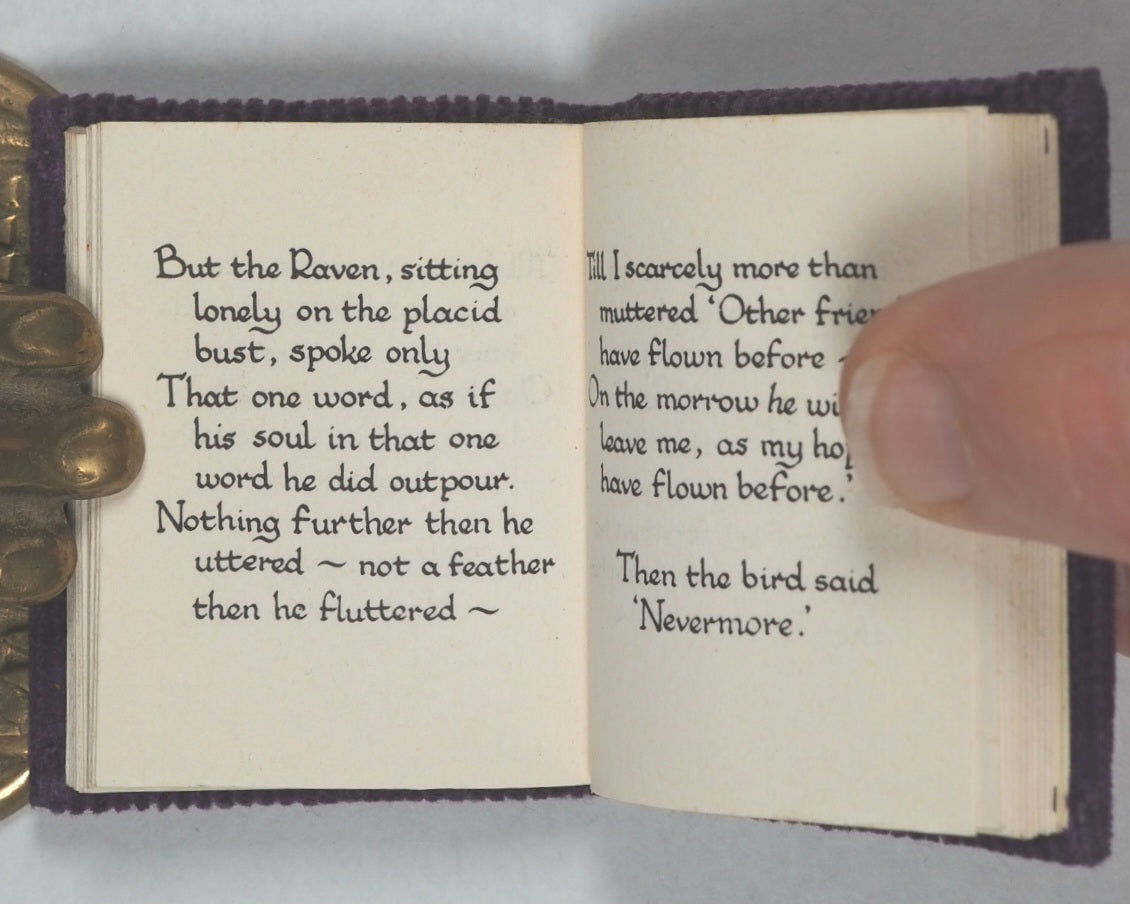 But the Raven, sitting
lonely on the placid
bust, spoke only
That one word, as if
his soul in that one
word he did outpour.
Nothing further then he
uttered ~ not a feather
then he fluttered ~
Till I scarcely more than
muttered ‘Other
have flown before ~
On the morrow he
leave me, as my
have flown before.’
Then the bird said
‘Nevermore.’